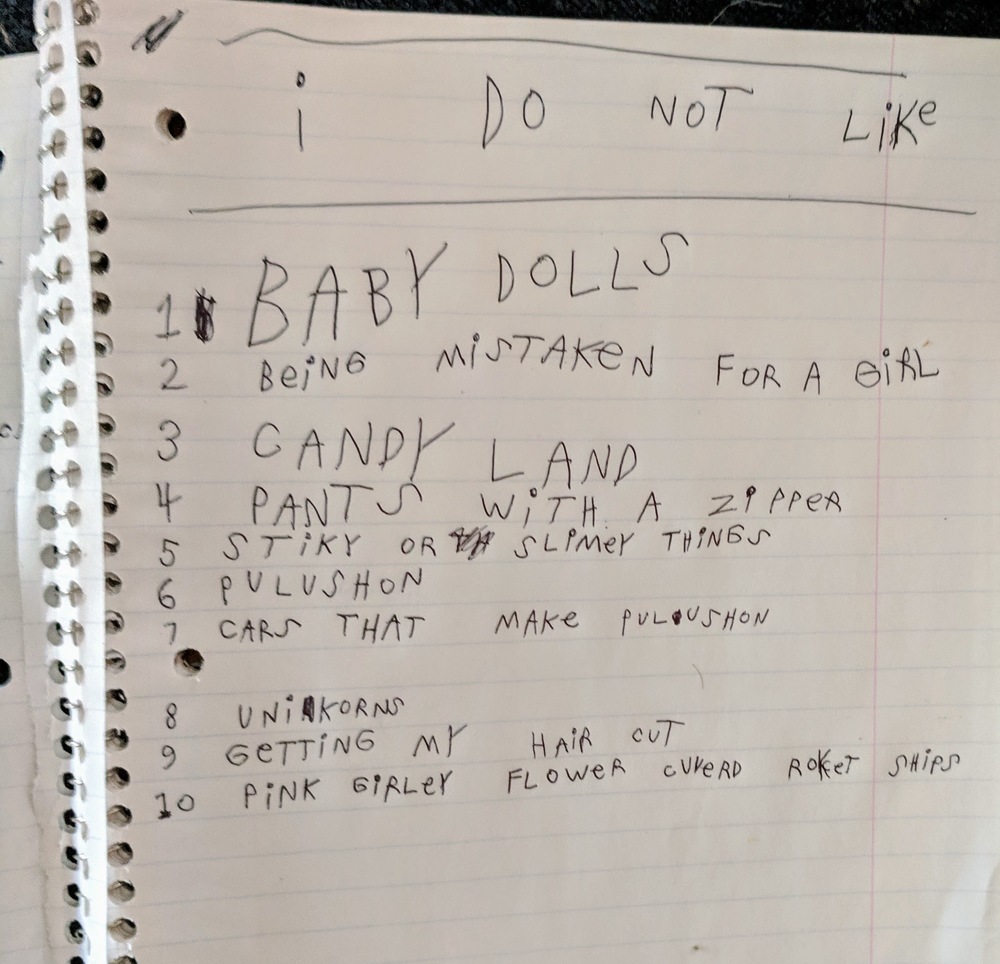 i DO NOT LiKe
1 BABY DOLLS
2 BeiNG MiSTAKeN FOR A GiRL
3 CANDY LAND
4 PANTS WiTH A ZiPPER
5 STiKY OR SLiMeY THiNGS
6 PULUSHON
7 CARS THAT MAKe PULUSHON
8 UNiKORNS
9 GeTTiNG MY HAiR CUT
10 PiNK GiRLeY FLOWER CUVERD ROKeT SHiPS